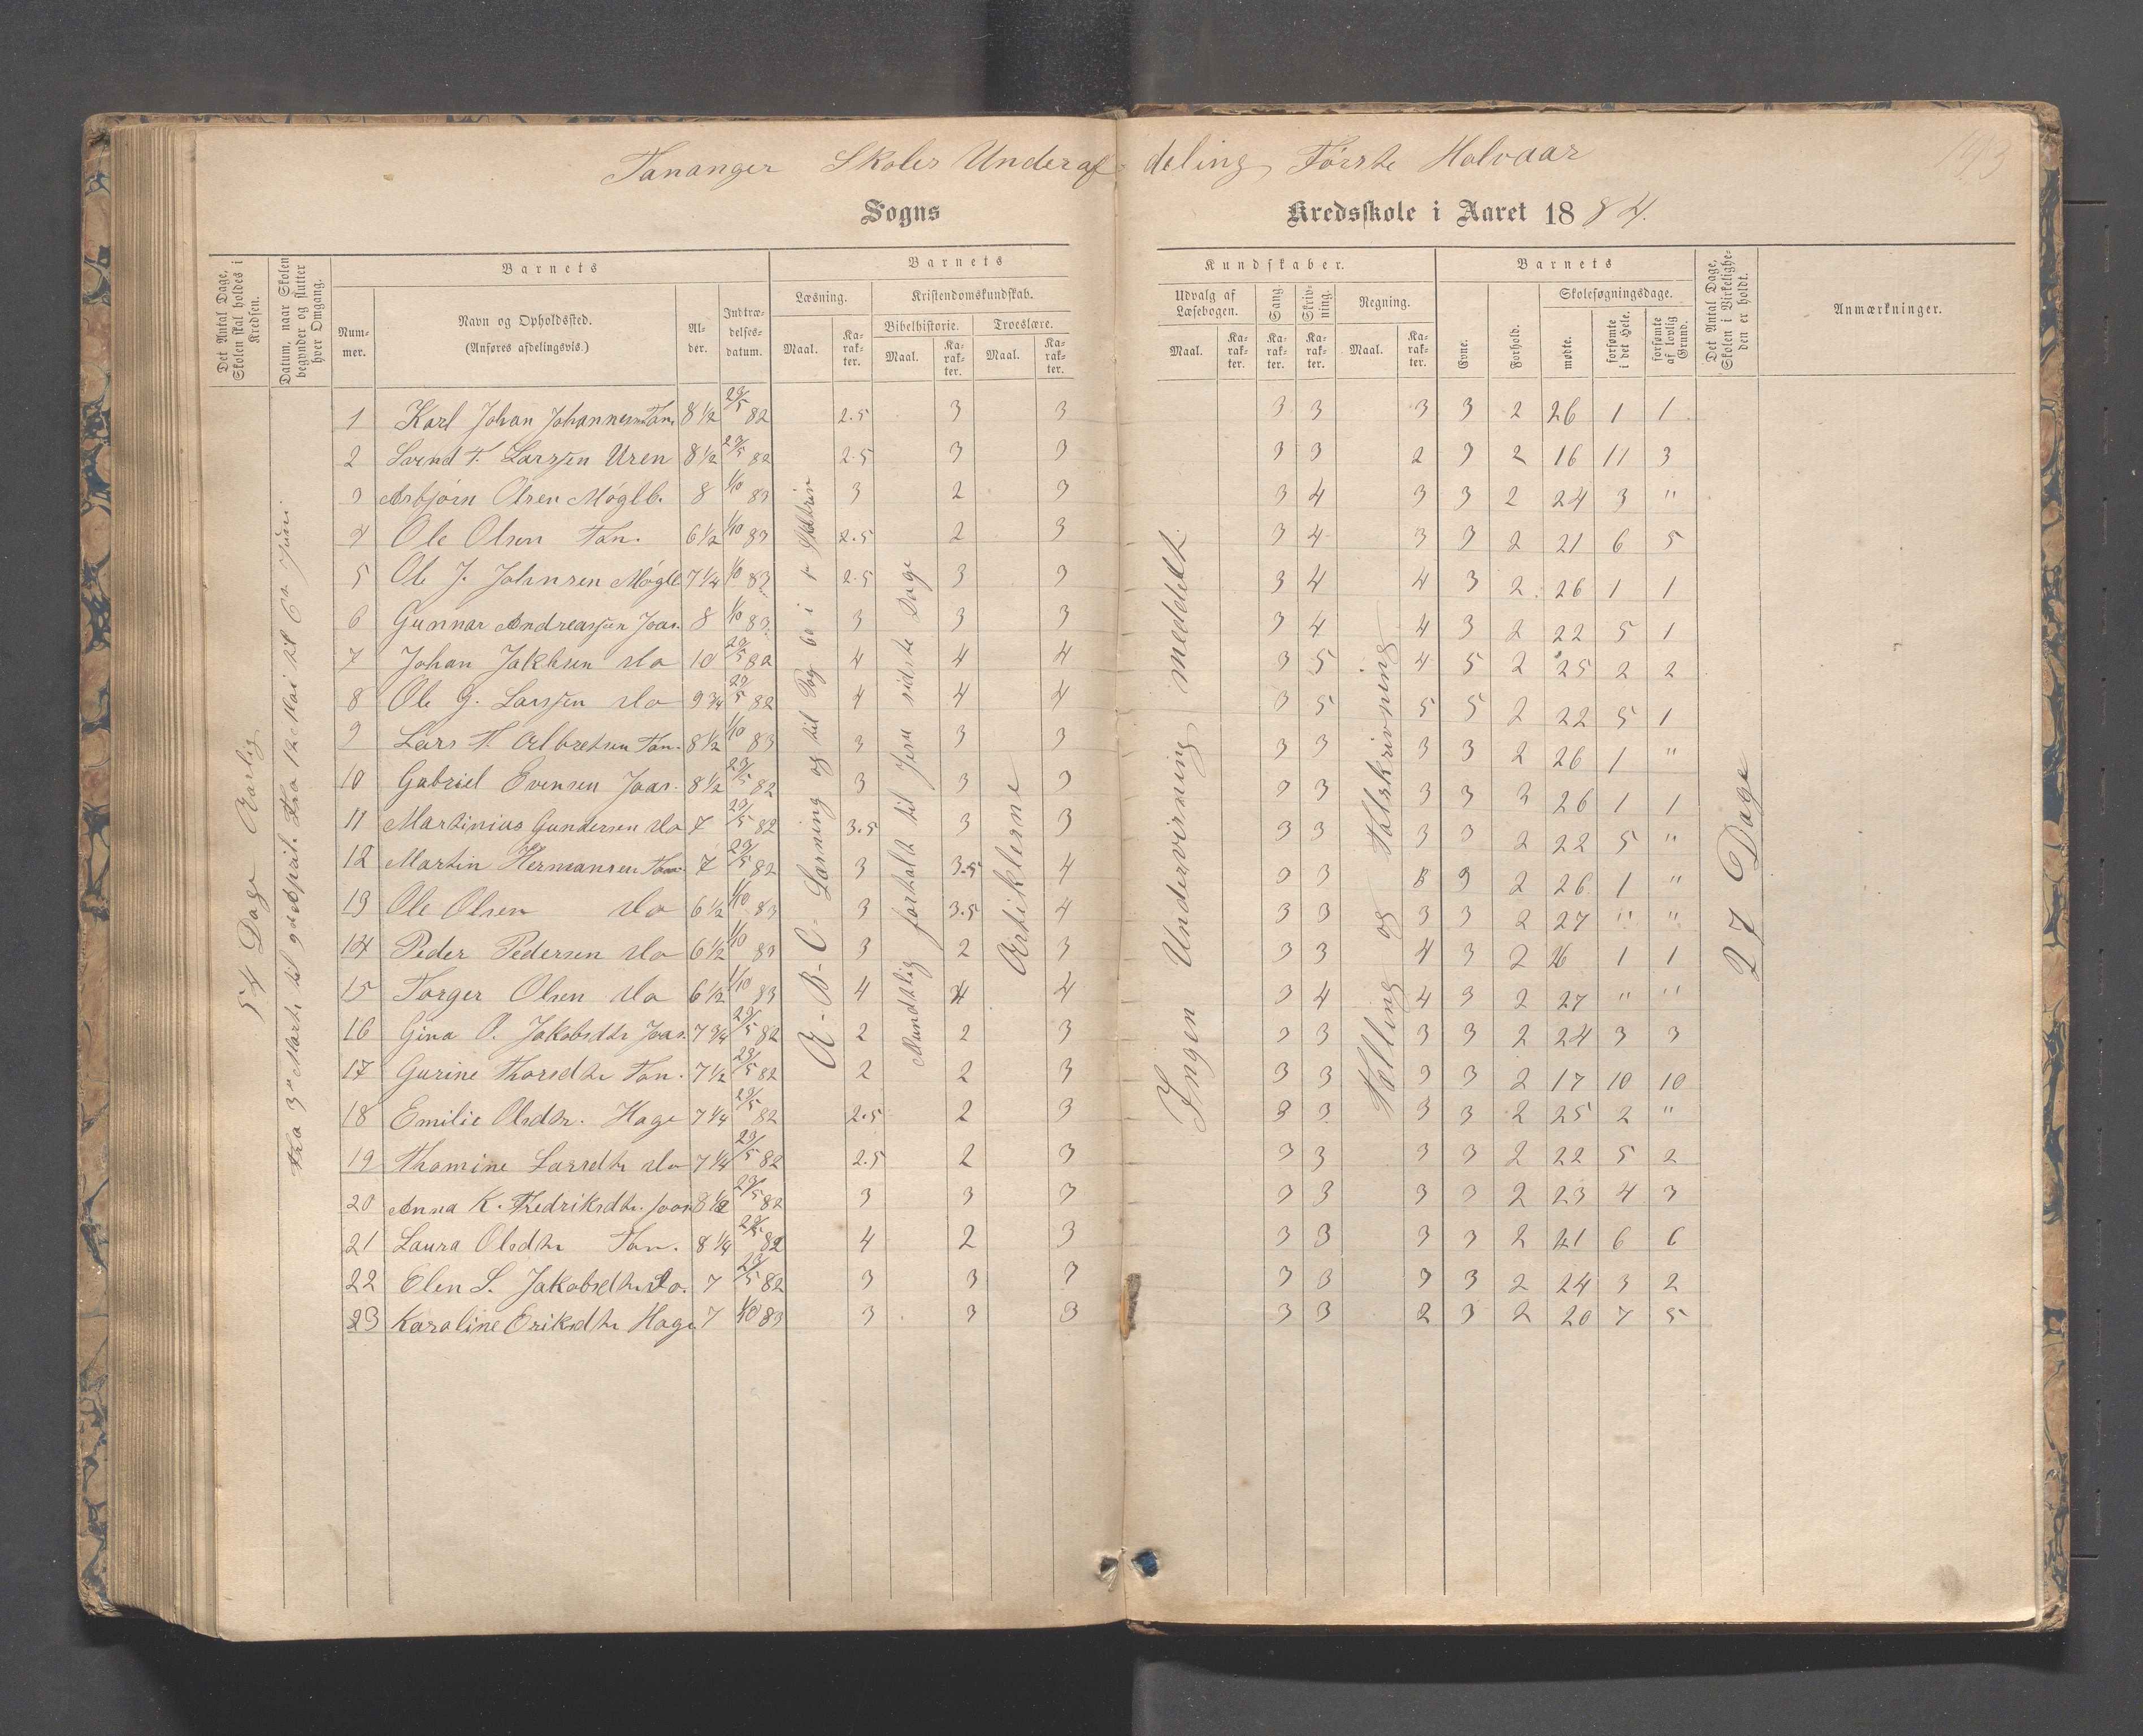 Tananger Skoles Underaf deling Første Halvaar
193
Sogns Kredsskole i Aaret 1884.
Det Antal Dage, Skolen skal holdes i Kredsen.
Datum, naar Skolen begynder og slutter hver Omgang.
Barnets
Num-mer.
Navn og Opholdssted. (Anføres afdelingsvis.)
Al-der.
Indtræ-delses-datum.
Barnets Kundskaber.
Læsning.
Maal. Ka-rak-ter.
Kristendomskundskab.
Bibelhistorie.
Maal. Ka-rak-ter.
Troeslære.
Maal. Ka-rak-ter.
Udvalg af Læsebogen.
Maal. Ka-rak-ter.
Sang. Ka-rak-ter.
Skriv-ning. Ka-rak-ter.
Regning.
Maal. Ka-rak-ter.
Barnets
Evne.
Forhold.
Skolesøgningsdage.
mødte.
forsømte i det Hele.
forsømte af lovlig Grund.
Det Antal Dage, Skolen i Virkelighe-den er holdt.
Anmærkninger.
54 Dage Aarlig
Fra 3die Marts til 9de April. Fra 12te Mai til 6te Juni.
A-B-C- Læsning og til Pag 60 i
Mundtlig fortalt til Jesu sidste Dage
Artiklerne
Ingen Undervisning meddelt.
Tælling og Talskrivning
27 Dage
1 Karl Johan Johannesen Tan. 8 1/2 29/5 82 2.5 3 3 3 3 3 3 2 26 1 1
2 Svend T. Larssen Uren 8 1/2 29/5 82 2.5 3 3 3 3 2 3 2 16 11 3
3 Asbjørn Olsen Møglb. 8 1/10 83 3 2 3 3 4 3 3 2 24 3 "
4 Ole Olsen Tan. 6 1/2 1/10 83 2.5 2 3 3 4 3 3 2 21 6 5
5 Ole J. Johnsen Møglb 7 1/4 1/10 83 2.5 3 3 3 4 4 3 2 26 1 1
6 Gunnar Andreassen Joas. 8 1/10 83 3 3 3 3 4 4 3 2 22 5 1
7 Johan Jakbsen do 10 29/5 82 4 4 4 3 5 4 5 2 25 2 2
8 Ole G. Larssen do 9 3/4 29/5 82 4 4 4 3 5 5 5 2 22 5 1
9 Lars T. Albretsen Tan. 8 1/2 1/10 83 3 3 3 3 3 3 3 2 26 1 "
10 Gabriel Evensen Joas. 8 1/2 29/5 82 3 3 3 3 3 3 3 3 26 1 1
11 Martinius Gundersen do 7 29/5 82 3.5 3 3 3 3 3 3 2 22 5 "
12 Martin Hermansen Tan. 7 29/5 82 3 3.5 4 3 3 3 3 2 26 1 "
13 Ole Olsen do 6 1/2 1/10 83 3 3.5 4 3 3 3 3 2 27 " "
14 Peder Pedersen do 6 1/2 1/10 83 3 2 3 3 3 4 3 2 26 1 1
15 Torger Olsen do 6 1/2 1/10 83 4 4 4 3 4 4 3 2 27 " "
16 Gina O. Jakobsdtr Joas. 7 3/4 29/5 82 2 2 3 3 3 3 3 2 24 3 3
17 Gurine Thorsdtr Tan. 7 1/2 29/5 82 2 2 3 3 3 3 3 2 17 10 10
18 Emilie Olsdtr. Hage 7 1/4 29/5 82 2.5 2 3 3 3 3 3 2 25 2 "
19 Thomine Larsdtr do 7 1/4 29/5 82 2.5 2 3 3 3 3 3 2 22 5 2
20 Anna K. Fredriksdtr. Joas 8 1/2 29/5 82 3 3 3 3 3 3 3 2 23 4 3
21 Laura Olsdtr Tan. 8 1/4 29/5 82 4 2 3 3 3 3 3 2 21 6 6
22 Elen S. Jakobsdtr do. 7 29/5 82 3 3 3 3 3 3 3 2 24 3 2
23 Karoline Eriksdtr Hage 7 1/10 83 3 3 3 3 3 2 3 2 20 7 5